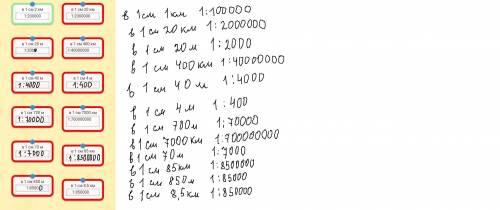 в 1 см 2 км
1:200000
в 1 см 20 км
1:2000000
в 1 см 20 м
в 1 см 400 км
1:40000000
в 1 см 40 м
1:4000
в 1 см 4 м
1:400
в 1 см 700 м
1:70000
в 1 см 7000 км
1:700000000
в 1 см 70 м
1:7000
в 1 см 85 км
1:8500000
в 1 см 850 м
в 1 см 8,5 км
1:850000
в 1 см 1 км 1:100000
в 1 см 20 км 1:2000000
в 1 см 20 м 1:2000
в 1 см 400 км 1:40000000
в 1 см 40 м 1:4000
в 1 см 4 м 1:400
в 1 см 700 м 1:70000
в 1 см 7000 км 1:700000000
в 1 см 70 м 1:7000
в 1 см 85 км 1:8500000
в 1 см 850 м 1:85000
в 1 см 8,5 км 1:850000